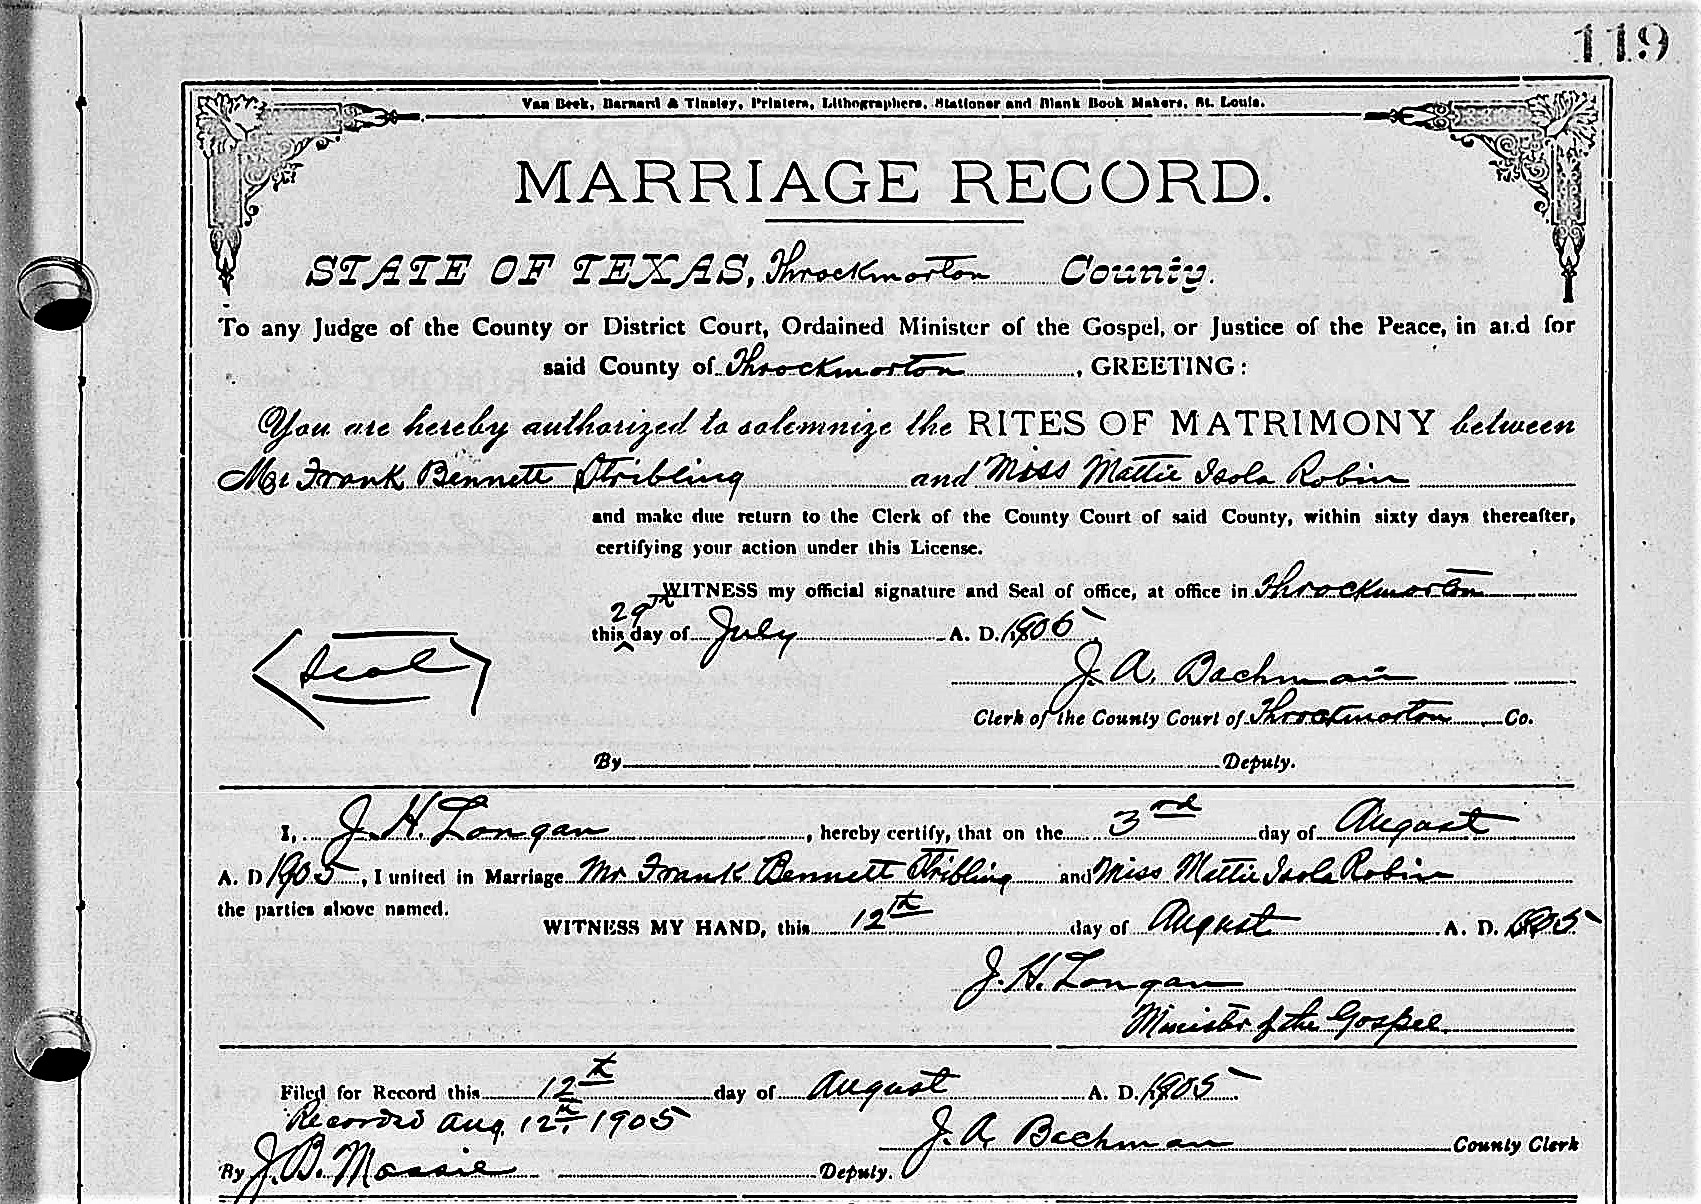 119
Van Beek, Barnard & Tinsley, Printers, Lithographers, Stationer and Blank Book Makers, St. Louis.
MARRIAGE RECORD.
STATE OF TEXAS, Throckmorton County.
To any Judge of the County or District Court, Ordained Minister of the Gospel, or Justice of the Peace, in and for
said County of Throckmorton, GREETING:
You are hereby authorized to solemnize the RITES OF MATRIMONY between
Mr Frank Bennett Stribling and Miss Mattie Isola Robin
and make due return to the Clerk of the County Court of said County, within sixty days thereafter,
certifying your action under this License.
WITNESS my official signature and Seal of office, at office in Throckmorton
this 29th day of July A. D. 1905
Seal
J. A. Bachman
Clerk of the County Court of Throckmorton Co.
By Deputy.
I, J. H. Longan, hereby certify, that on the 3rd day of August
A. D 1905, I united in Marriage Mr Frank Bennett Stribling and Miss Mattie Isola Robin
the parties above named.
WITNESS MY HAND, this 12th day of August A. D. 1905
J. H. Longan
Minister of the Gospel.
Filed for Record this 12th day of August A. D. 1905.
Recorded Aug. 12th, 1905
J. A. Bachman County Clerk
By J. B. Massie Deputy.